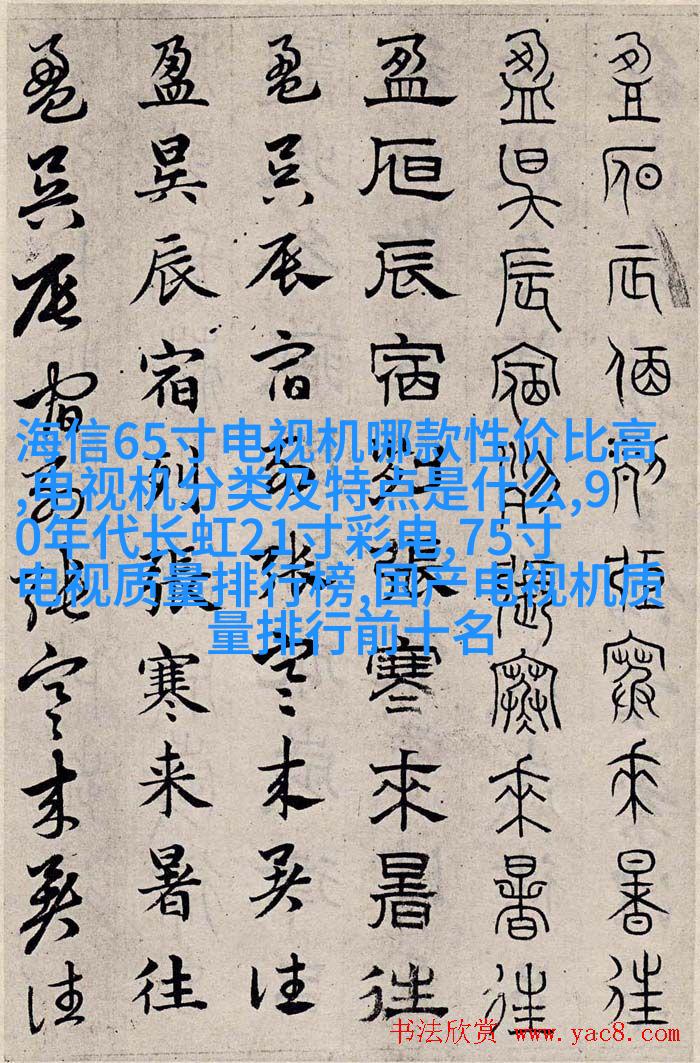 盈昃辰宿列張寒來暑往
盈昃辰宿列張寒來暑往
盈昃辰宿列張寒來暑往
盈昃辰宿列張寒来暑往
盈昃辰宿列張寒来暑往
盈昃辰宿列張寒来暑往
海信65寸电视机哪款性价比高
,电视机分类及特点是什么,9
0年代长虹21寸彩电,75寸
电视质量排行榜,国产电视机质
量排行前十名
书法欣赏 www.yac8.com